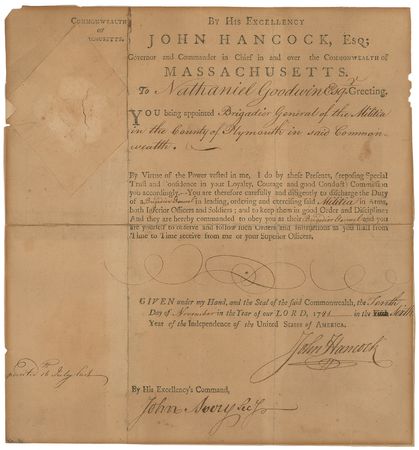 COMMONWEALTH
OF
By His Excellency
JOHN HANCOCK, Esq;
Governor and Commander in Chief in and over the Commonwealth of
MASSACHUSETTS.
To Nathaniel Goodwin Esqr. Greeting.
YOU being appointed Brigadier General of the Militia
in the County of Plymouth in said Common-
wealth.
By Virtue of the Power vested in me, I do by these Presents, (reposing Special
Trust and Confidence in your Loyalty, Courage and good Conduct) Commission
you accordingly.—You are therefore carefully and diligently to discharge the Duty
of a Brigadier General in leading, ordering and exercising said Militia in Arms,
both Inferior Officers and Soldiers; and to keep them in good Order and Discipline:
And they are hereby commanded to obey you as their Brigadier General and you
are yourself to observe and follow such Orders and Instructions as you shall from
Time to Time receive from me or your Superior Officers.
GIVEN under my Hand, and the Seal of the said Commonwealth, the
Day of November in the Year of our LORD, 1781 in the Sixth
Year of the Independence of the United States of America.
John Hancock
16 July last
By His Excellency's Command,
John Avery Secy